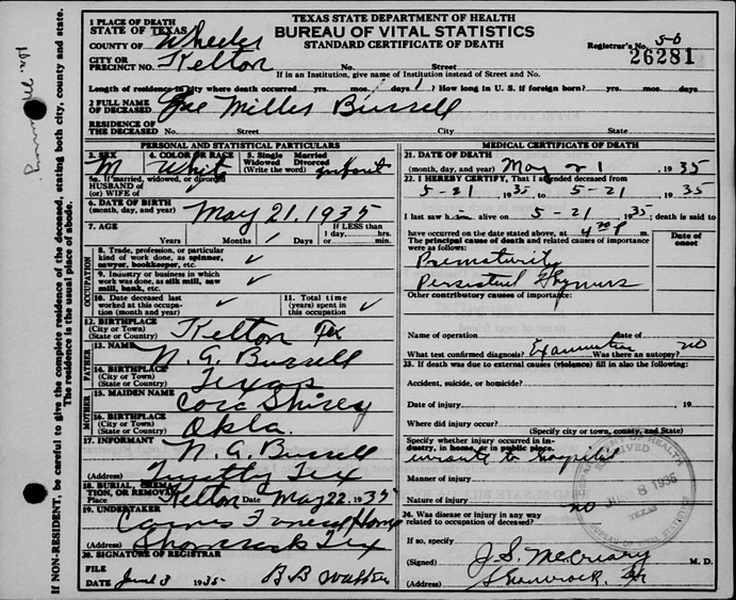 TEXAS STATE DEPARTMENT OF HEALTH
BUREAU OF VITAL STATISTICS
STANDARD CERTIFICATE OF DEATH
1 PLACE OF DEATH
STATE OF TEXAS
COUNTY OF Wheeler
Registrar's No. 50
26281
CITY OR PRECINCT NO. Kelton No. Street
If in an Institution, give name of Institution instead of Street and No.
Length of residence in city where death occurred yrs. mos. days 1 How long in U. S. if foreign born? yrs. mos. days
2 FULL NAME OF DECEASED Miller Bussell
RESIDENCE OF THE DECEASED No. Street City State
PERSONAL AND STATISTICAL PARTICULARS
3. SEX M
4. COLOR OR RACE Whit
5. Single Married Widowed Divorced (Write the word) infant
5a. If married, widowed, or divorced
HUSBAND OF (or) WIFE OF
6. DATE OF BIRTH (month, day, and year) May 21. 1935
7. AGE Years Months ✓ Days If LESS than 1 day, hrs. or min.
OCCUPATION
8. Trade, profession, or particular kind of work done, as spinner, sawyer, bookkeeper, etc. ✓
9. Industry or business in which work was done, as silk mill, saw mill, bank, etc. ✓
10. Date deceased last worked at this occupation (month and year) ✓
11. Total time (years) spent in this occupation ✓
12. BIRTHPLACE (City or Town) (State or Country) Kelton Tex
FATHER
13. NAME N. G. Bussell
14. BIRTHPLACE (City or Town) (State or Country) Texas
MOTHER
15. MAIDEN NAME Cora Shirey
16. BIRTHPLACE (City or Town) (State or Country) Okla.
17. INFORMANT N. G. Bussell
(Address) Twitty Tex
18. BURIAL, CREMATION, OR REMOVAL
Place Kelton Date May 22. 1935
19. UNDERTAKER Funeral Home
(Address) Shamrock Tex
20. SIGNATURE OF REGISTRAR
FILE DATE June 3 1935 B B
MEDICAL CERTIFICATE OF DEATH
21. DATE OF DEATH (month, day, and year) May 21 1935
22. I HEREBY CERTIFY, That I attended deceased from
5-21 1935 to 5-21 1935
I last saw him alive on 5-21 1935; death is said to
have occurred on the date stated above, at 4 P m.
The principal cause of death and related causes of importance were as follows:
Date of onset
Prematurity
Persistent Thymus
Other contributory causes of importance:
Name of operation date of
What test confirmed diagnosis? Examination Was there an autopsy? no
23. If death was due to external causes (violence) fill in also the following:
Accident, suicide, or homicide?
Date of injury 19
Where did injury occur?
(Specify city or town, county, and State)
Specify whether injury occurred in industry, in home, or in public place.
enroute to hospital
Manner of injury
Nature of injury
24. Was disease or injury in any way related to occupation of deceased? no
If so, specify
(Signed) J. S. McCreary M. D.
(Address) Shamrock, Tex
DEPARTMENT OF HEALTH
RECEIVED
JUN 8 1935
TEXAS
BUREAU OF VITAL STATISTICS
If NON-RESIDENT, be careful to give the complete residence of the deceased, stating both city, county and state.
The residence is the usual place of abode.